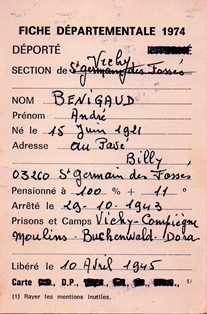 FICHE DÉPARTEMENTALE 1974
DÉPORTÉ
Vichy
SECTION de St germain des Fossés
NOM BENIGAUD
Prénom André
Né le 15 Juin 1921
Adresse au Pavé
Billy,
03260 St Germain des Fosses
Pensionné à 100 % + 11°
Arrêté le 29-10-1943
Prisons et Camps Vichy-Compiègne
Moulins-Buchenwald-Dora
Libéré le 10 Avril 1945
Carte D.P.,
1)
(1) Rayer les mentions inutiles.